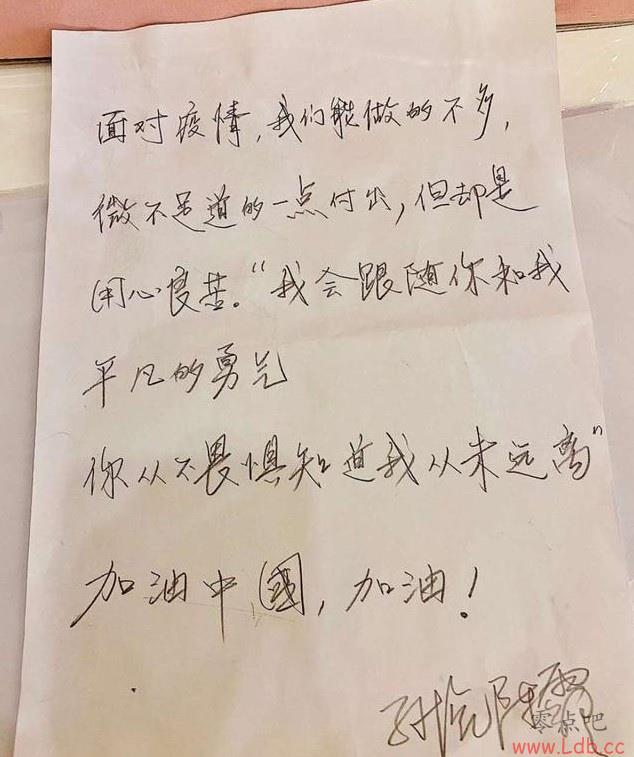 面对疫情,我们能做的不多,
微不足道的一点付出,但却是
用心良苦。“我会跟随你和我
平凡的勇气
你从不畏惧知道我从未远离”
加油中國,加油!
零点吧
www.Ldb.cc